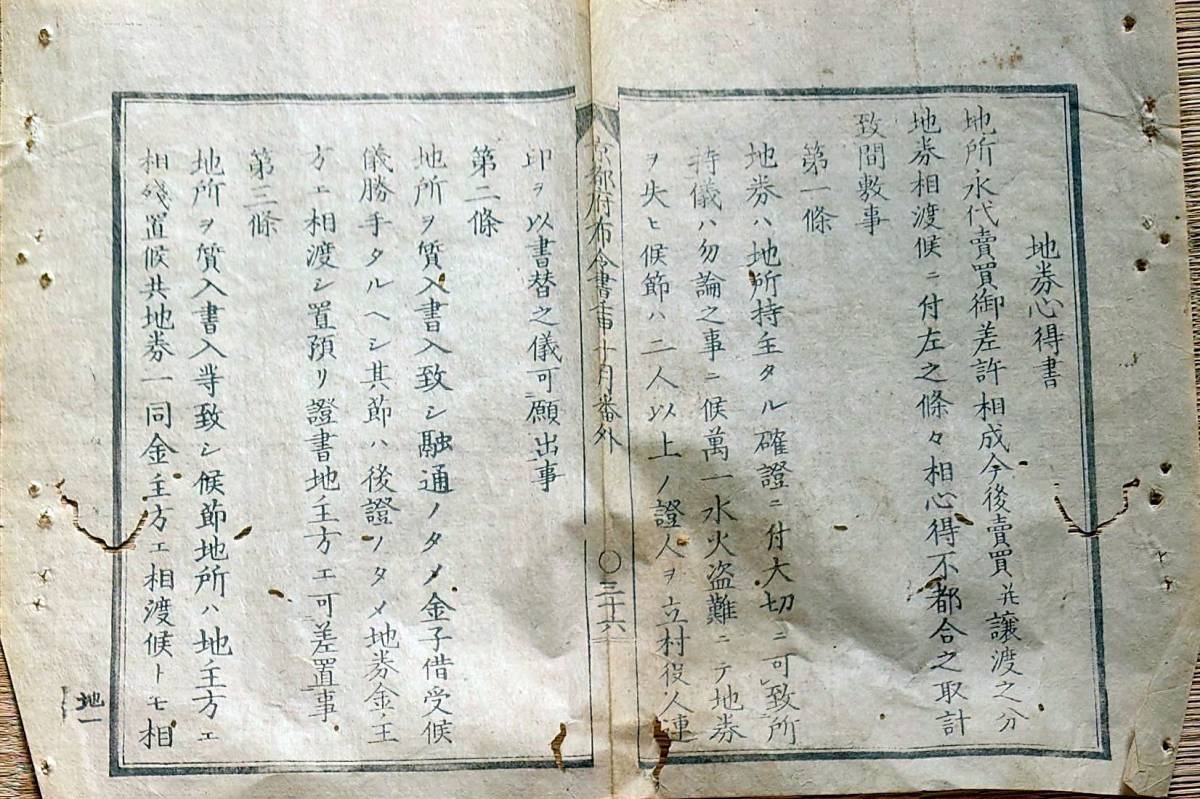 地券心得書
地所永代賣買御差許相成今後賣買并譲渡之分
地券相渡候ニ付左之條々相心得不都合之取計
致間敷事
第一條
地券ハ地所持主タル確證ニ付大切ニ可致所
持儀ハ勿論之事ニ候萬一水火盗難ニテ地券
ヲ失ヒ候節ハ二人以上ノ證人ヲ立村役人連
京都府布令書 十月番外
〇三十六
印ヲ以書替之儀可願出事
第二條
地所ヲ質入書入致シ融通ノタメ金子借受候
儀勝手タルヘシ其節ハ後證ノタメ地券金ノ主
方エ相渡シ置預リ證書地主方エ可差置事
第三條
地所ヲ質入書入等致シ候節地所ハ地主方エ
相殘置候共地券一同金主方エ相渡候トモ相
地一